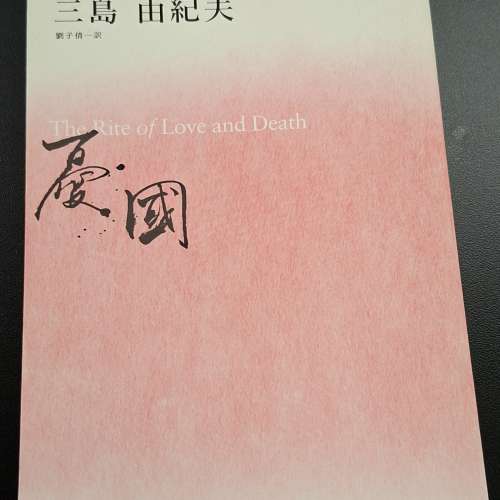 三島 由紀夫
劉子倩一訳
The Rite of Love and Death
憂國